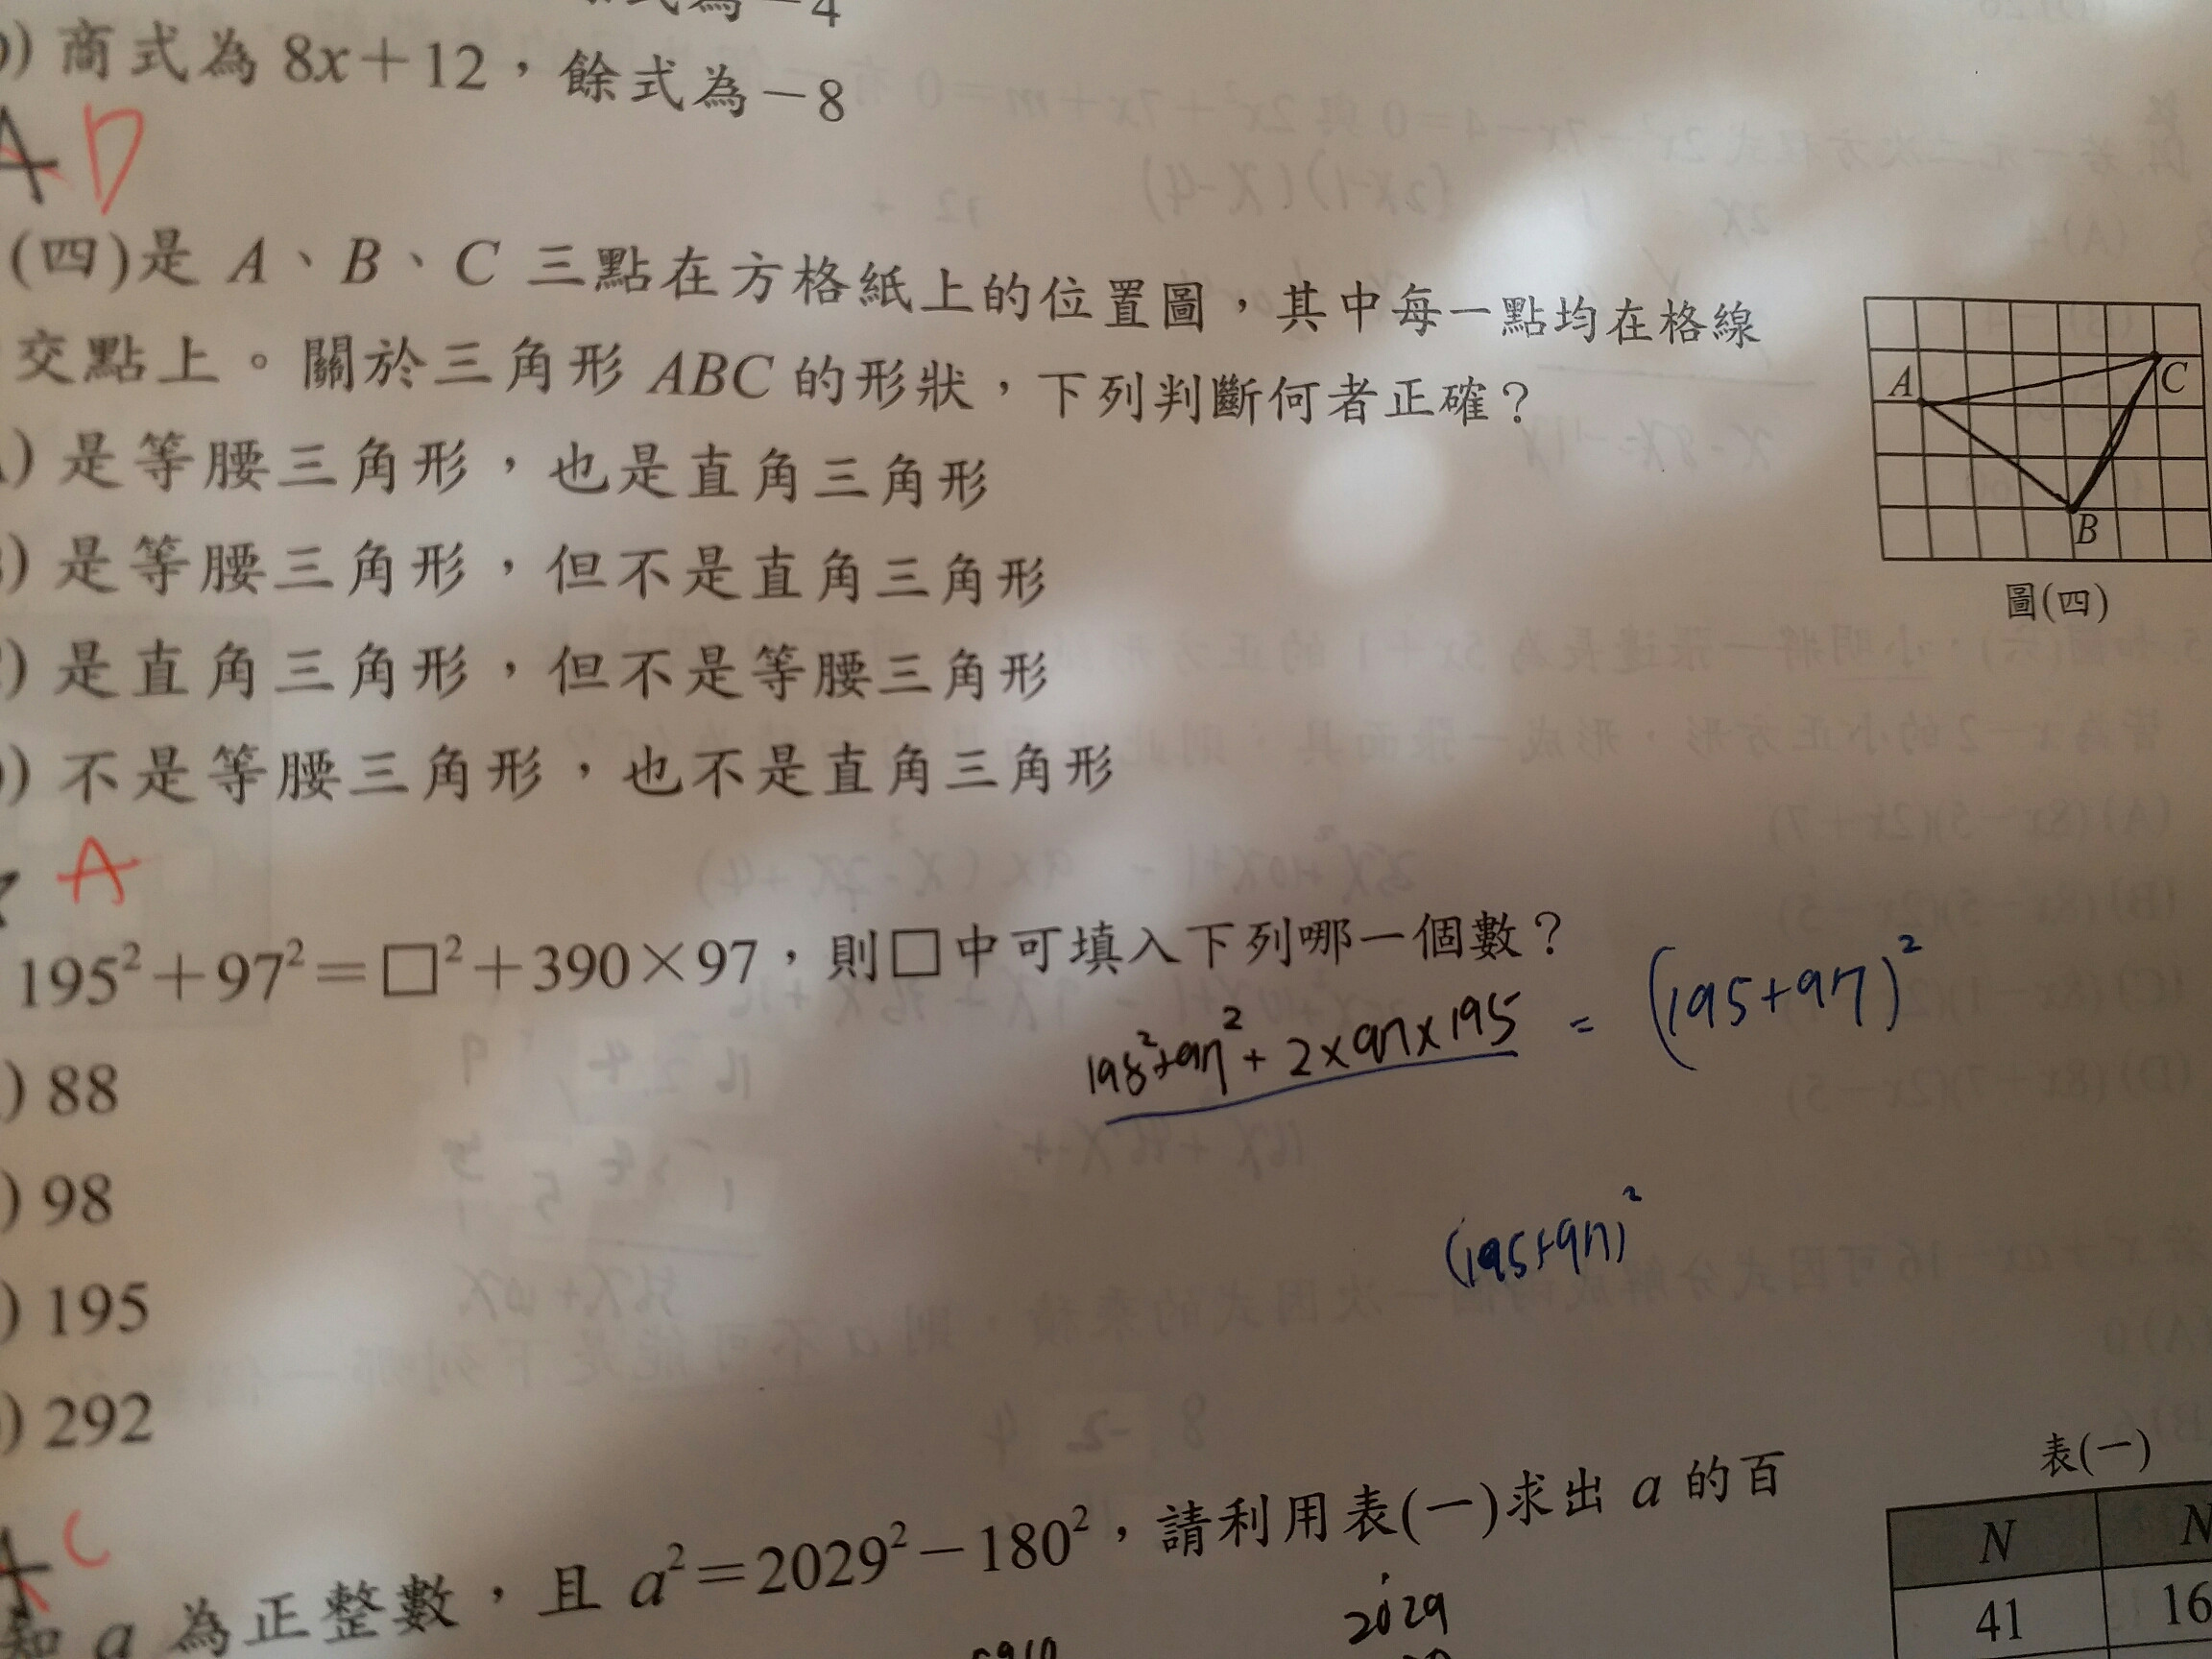 式為－4
)商式為 8x＋12，餘式為－8
A D
(四)是 A、B、C 三點在方格紙上的位置圖，其中每一點均在格線
交點上。關於三角形 ABC 的形狀，下列判斷何者正確？
)是等腰三角形，也是直角三角形
)是等腰三角形，但不是直角三角形
)是直角三角形，但不是等腰三角形
)不是等腰三角形，也不是直角三角形
A
C
B
圖(四)
A
195²＋97²＝□²＋390×97，則□中可填入下列哪一個數？
198²+97²+2×97×195 = (195+97)²
)88
)98
(195+97)²
)195
)292
C
知 a 為正整數，且 a²＝2029²－180²，請利用表(一)求出 a 的百
2029
表(一)
N N
41 16